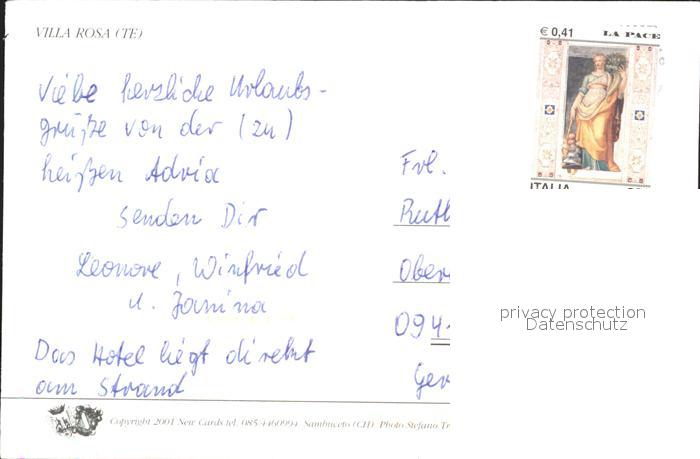 VILLA ROSA (TE)
€ 0,41 LA PACE
ITALIA
Viele herzliche Urlaubs-
grüße von der (zu)
heißen Adria
senden Dir
Leonore, Winfried
u. Janina
Das Hotel liegt direkt
am Strand
Frl.
Ruth
Ober
094
Ger
privacy protection
Datenschutz
Copyright 2001 New Cards tel. 085/4460994 Sambuceto (CH) Photo Stefano Tr